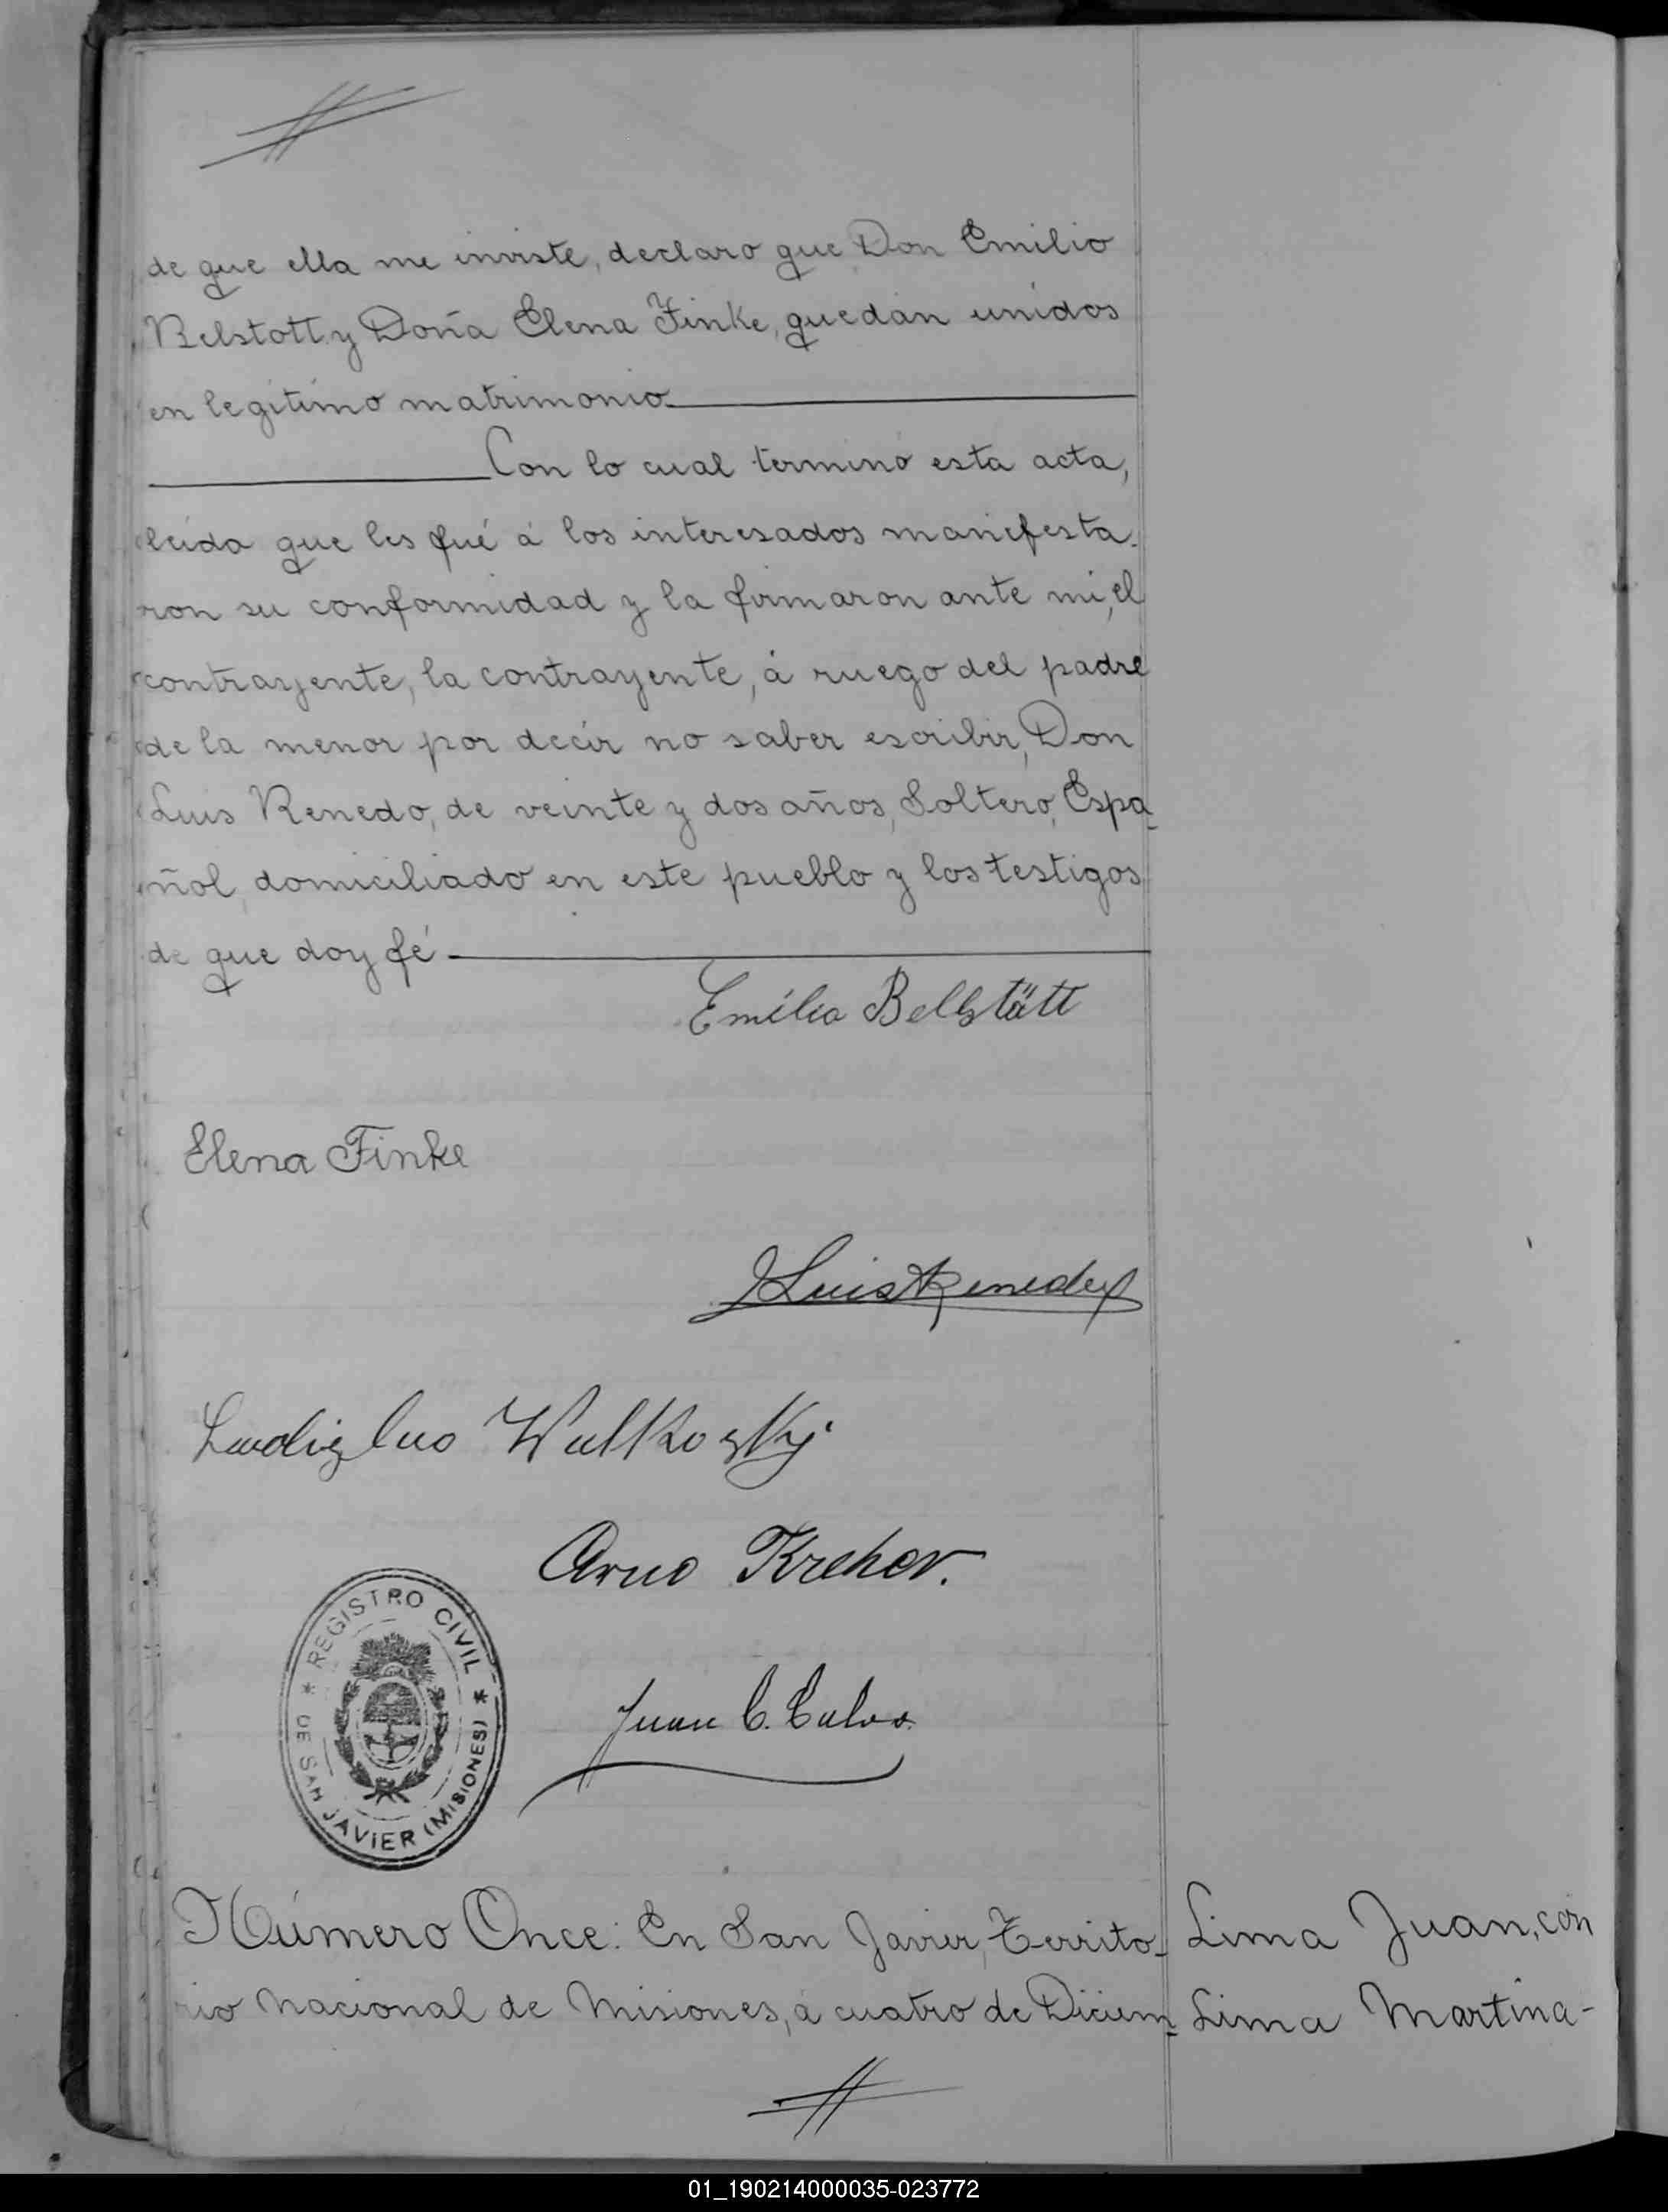 de que ella me inviste, declaro que Don Emilio
Belstott y Doña Elena Finke, quedan unidos
en legítimo matrimonio
Con lo cual terminó esta acta,
leída que les fué á los interesados manifesta-
ron su conformidad y la firmaron ante mí, el
contrayente, la contrayente, á ruego del padre
de la menor por decir no saber escribir, Don
Luis Renedo, de veinte y dos años, Soltero, Espa-
ñol, domiciliado en este pueblo y los testigos
de que doy fé
Emilio Bellstätt
Elena Finke
Luis Renedo
Wulkosky
Arno Kreher.
REGISTRO CIVIL
* DE SAN JAVIER (MISIONES) *
Juan C. Calvo.
Número Once: En San Javier, Territo- Lima Juan, con
rio Nacional de Misiones, á cuatro de Diciem- Lima Martina-
01_190214000035-023772